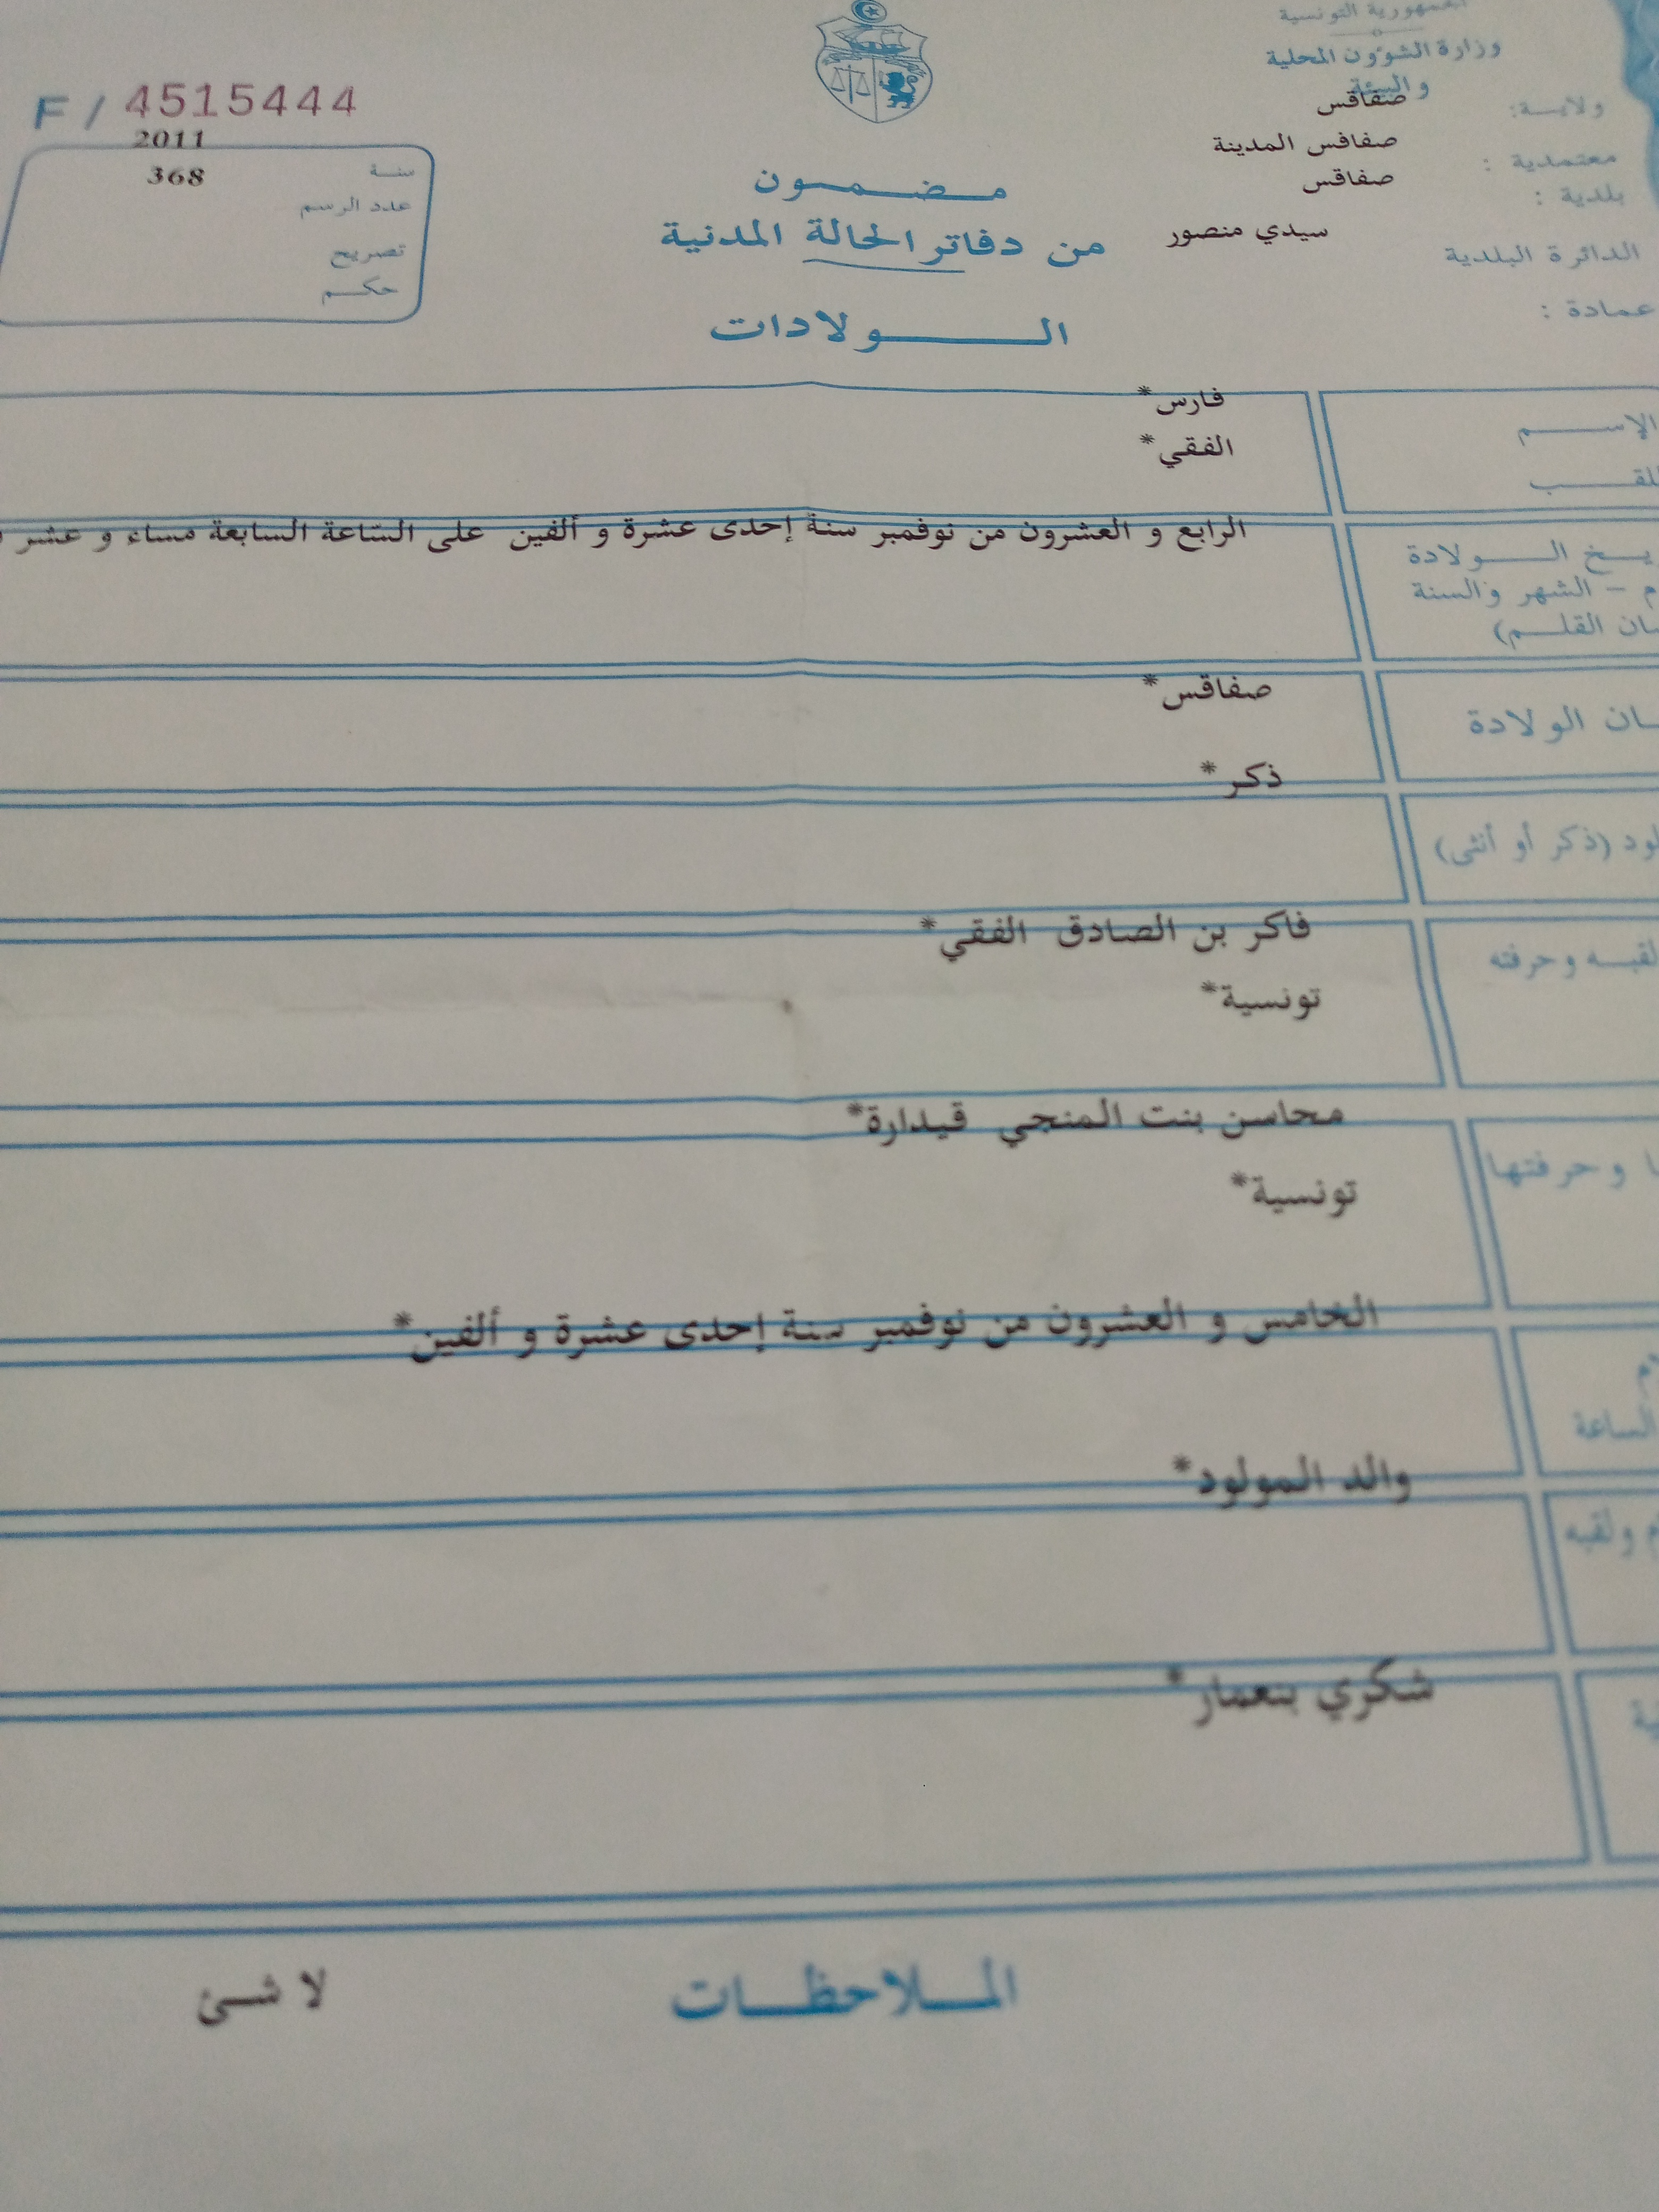 الجمهورية التونسية
وزارة الشؤون المحلية
و البيئة
ولايــة: صفاقس
معتمدية : صفاقس المدينة
بلدية : صفاقس
الدائرة البلدية سيدي منصور
عمادة :
F / 4515444
2011
سنة 368
عدد الرسم
تصريح
حكم
مضمون
من دفاتر الحالة المدنية
الولادات
الإسم فارس*
اللقب الفقي*
الرابع و العشرون من نوفمبر سنة إحدى عشرة و ألفين على الساعة السابعة مساء و عشر
الولادة
– الشهر والسنة
القلم)
الولادة صفاقس*
ذكر*
(ذكر أو أنثى)
فاكر بن الصادق الفقي*
لقبه وحرفته
تونسية*
محاسن بنت المنجي قيدارة*
وحرفتها
تونسية*
الخامس و العشرون من نوفمبر سنة إحدى عشرة و ألفين*
الساعة
والد المولود*
ولقبه
شكري بنعمار*
الملاحظات
لا شئ